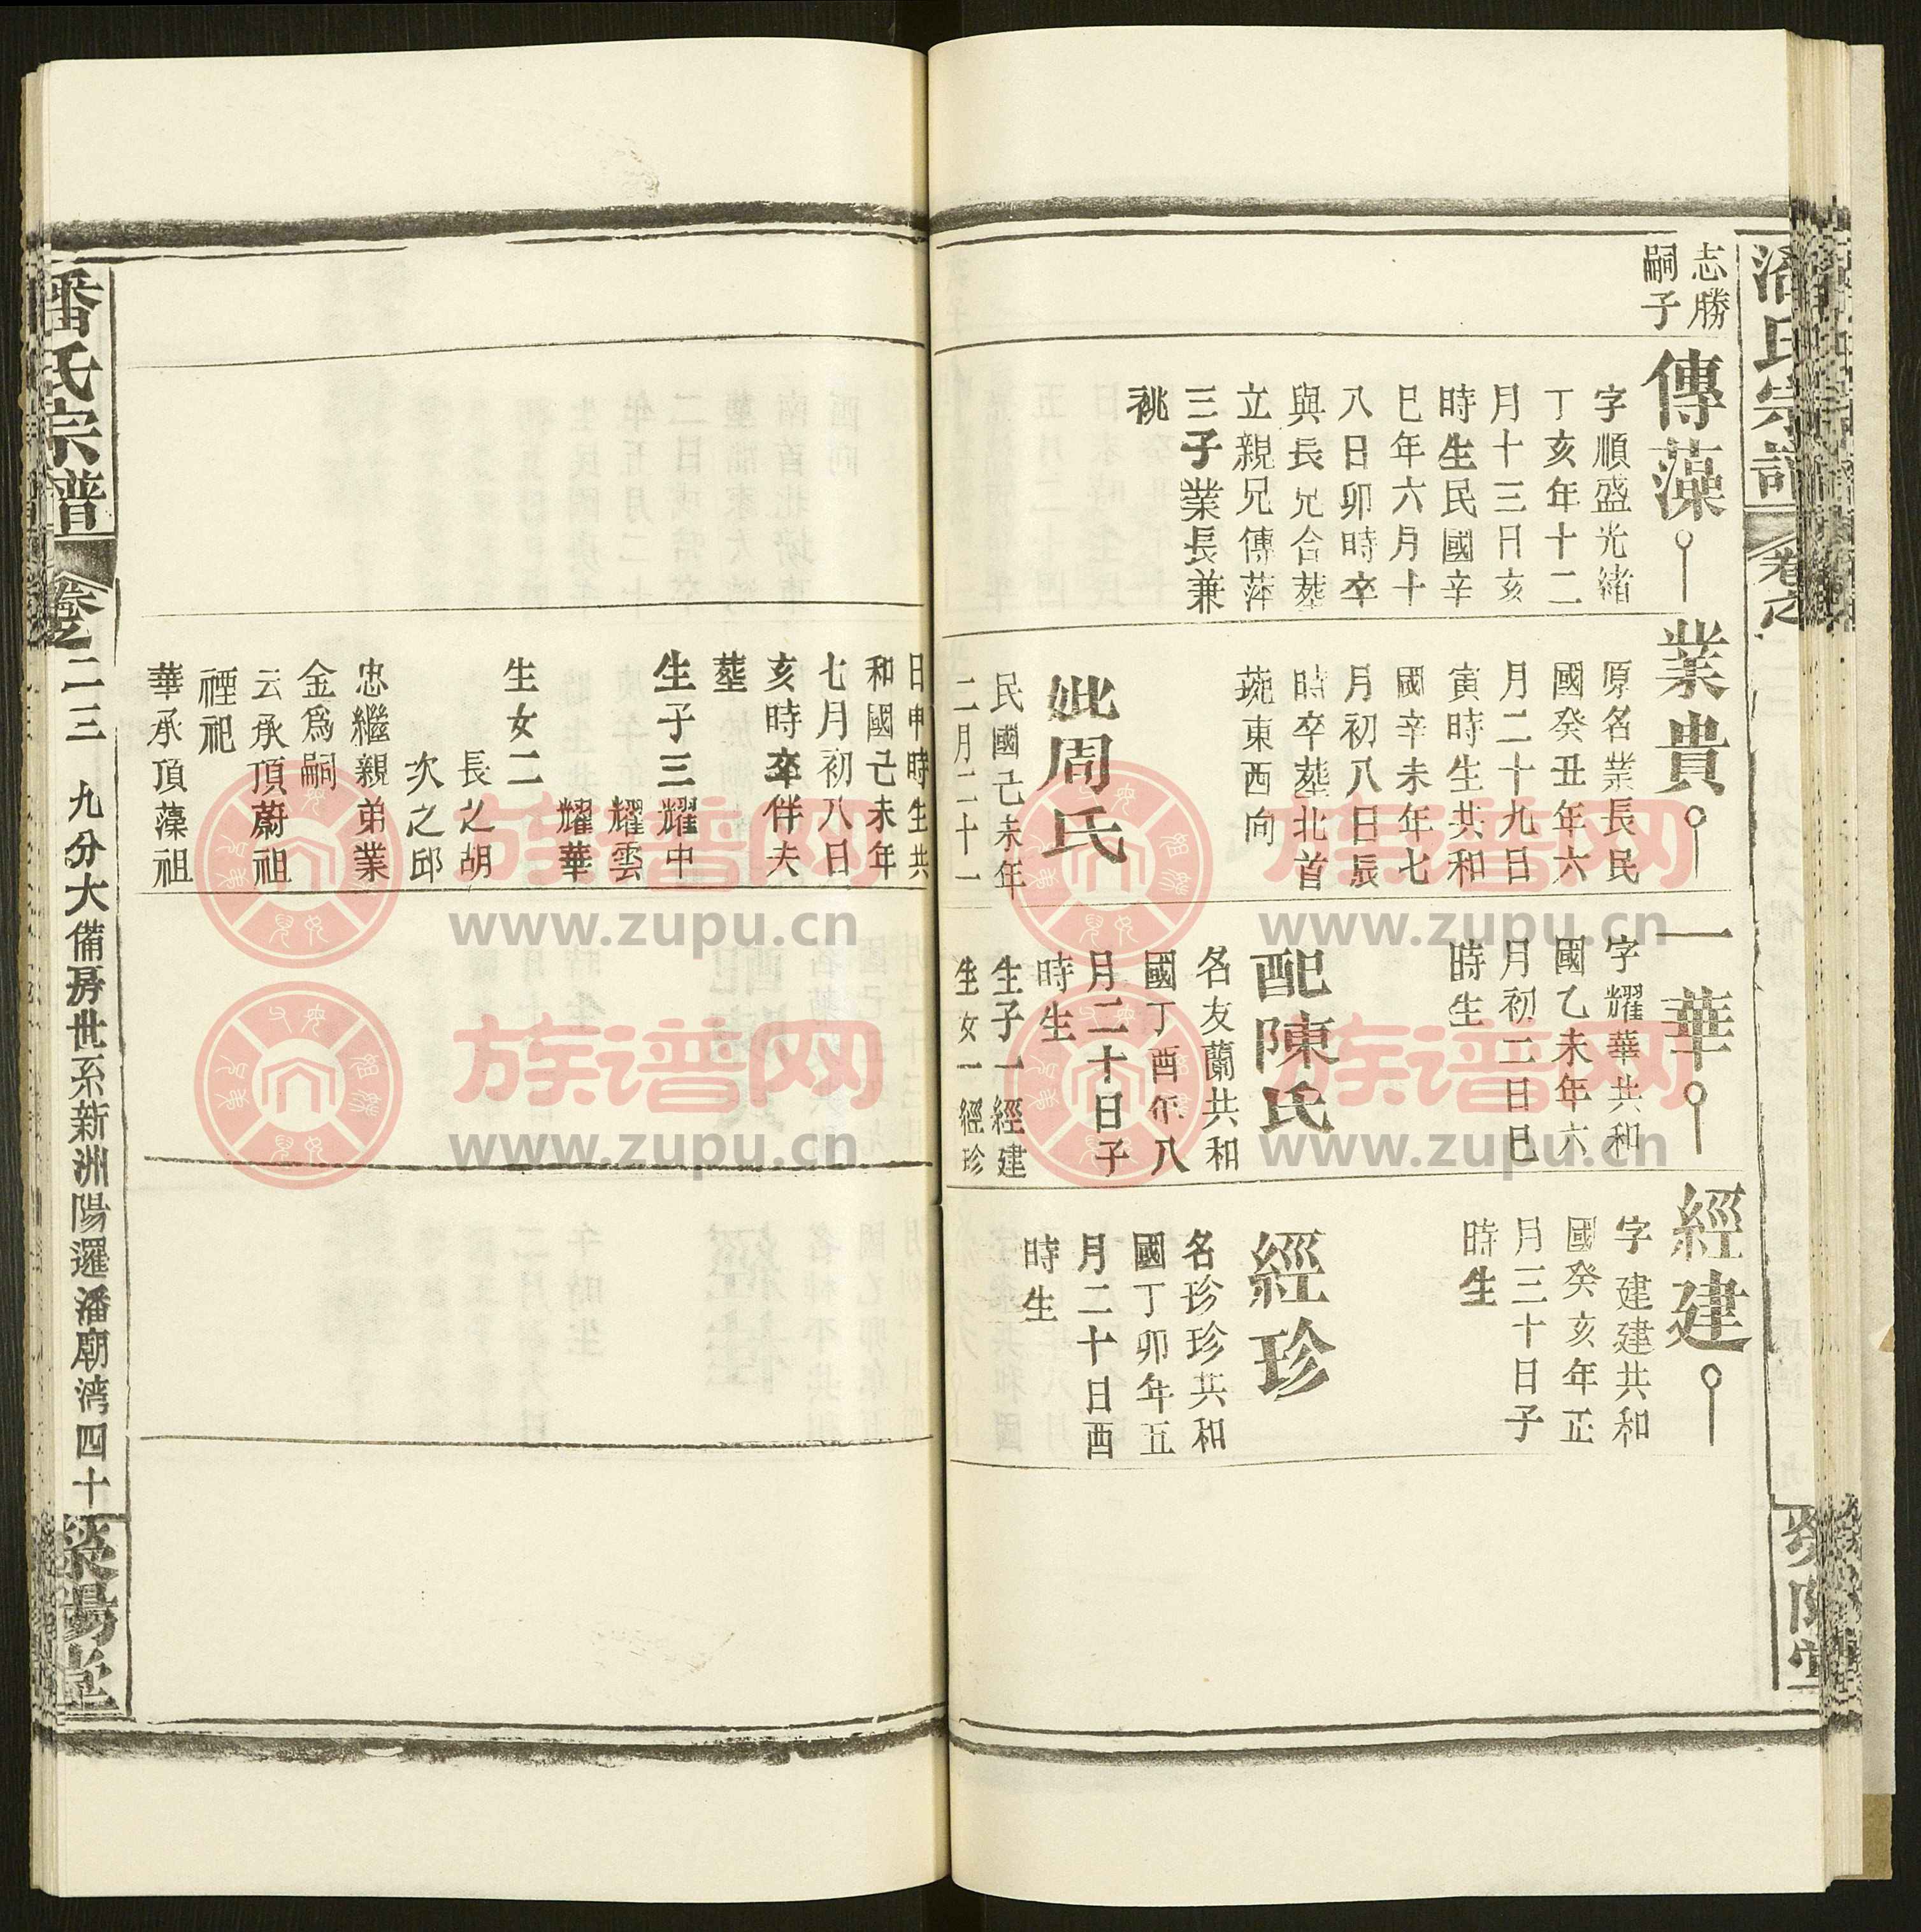 潘氏宗譜
卷之
滎陽堂
志勝
嗣子
傳藻
字順盛光緒
丁亥年十二
月十三日亥
時生民國辛
巳年六月十
八日卯時卒
與長兄合塟
立親兄傳萍
三子業長兼
祧
業貴
原名業長民
國癸丑年六
月二十九日
寅時生共和
國辛未年七
月初八日辰
時卒塟北首
塝東西向
妣周氏
民國己未年
二月二十一
日申時生共
和國己未年
七月初八日
亥時卒伴夫
塟
生子三耀中
耀雲
耀華
生女二
長之胡
次之邱
忠繼親弟業
金為嗣
云承頂蔚祖
禋祀
華承頂藻祖
一華
字耀華共和
國乙未年六
月初二日巳
時生
配陳氏
名友蘭共和
國丁酉年八
月二十日子
時生
生子一經建
生女一經珍
經建
字建建共和
國癸亥年正
月三十日子
時生
經珍
名珍珍共和
國丁卯年五
月二十日酉
時生
潘氏宗譜
卷之
二三 九分大備房世系新洲陽邏潘廟湾四十
滎陽堂
族谱网
www.zupu.cn
族谱网
www.zupu.cn
族谱网
www.zupu.cn
族谱网
www.zupu.cn